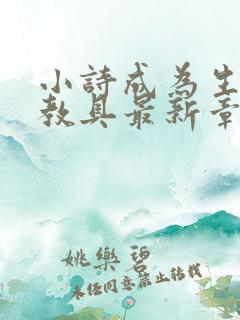 小詩戒為生
教具最新章
姚樂碧
未任同意禁止轉載